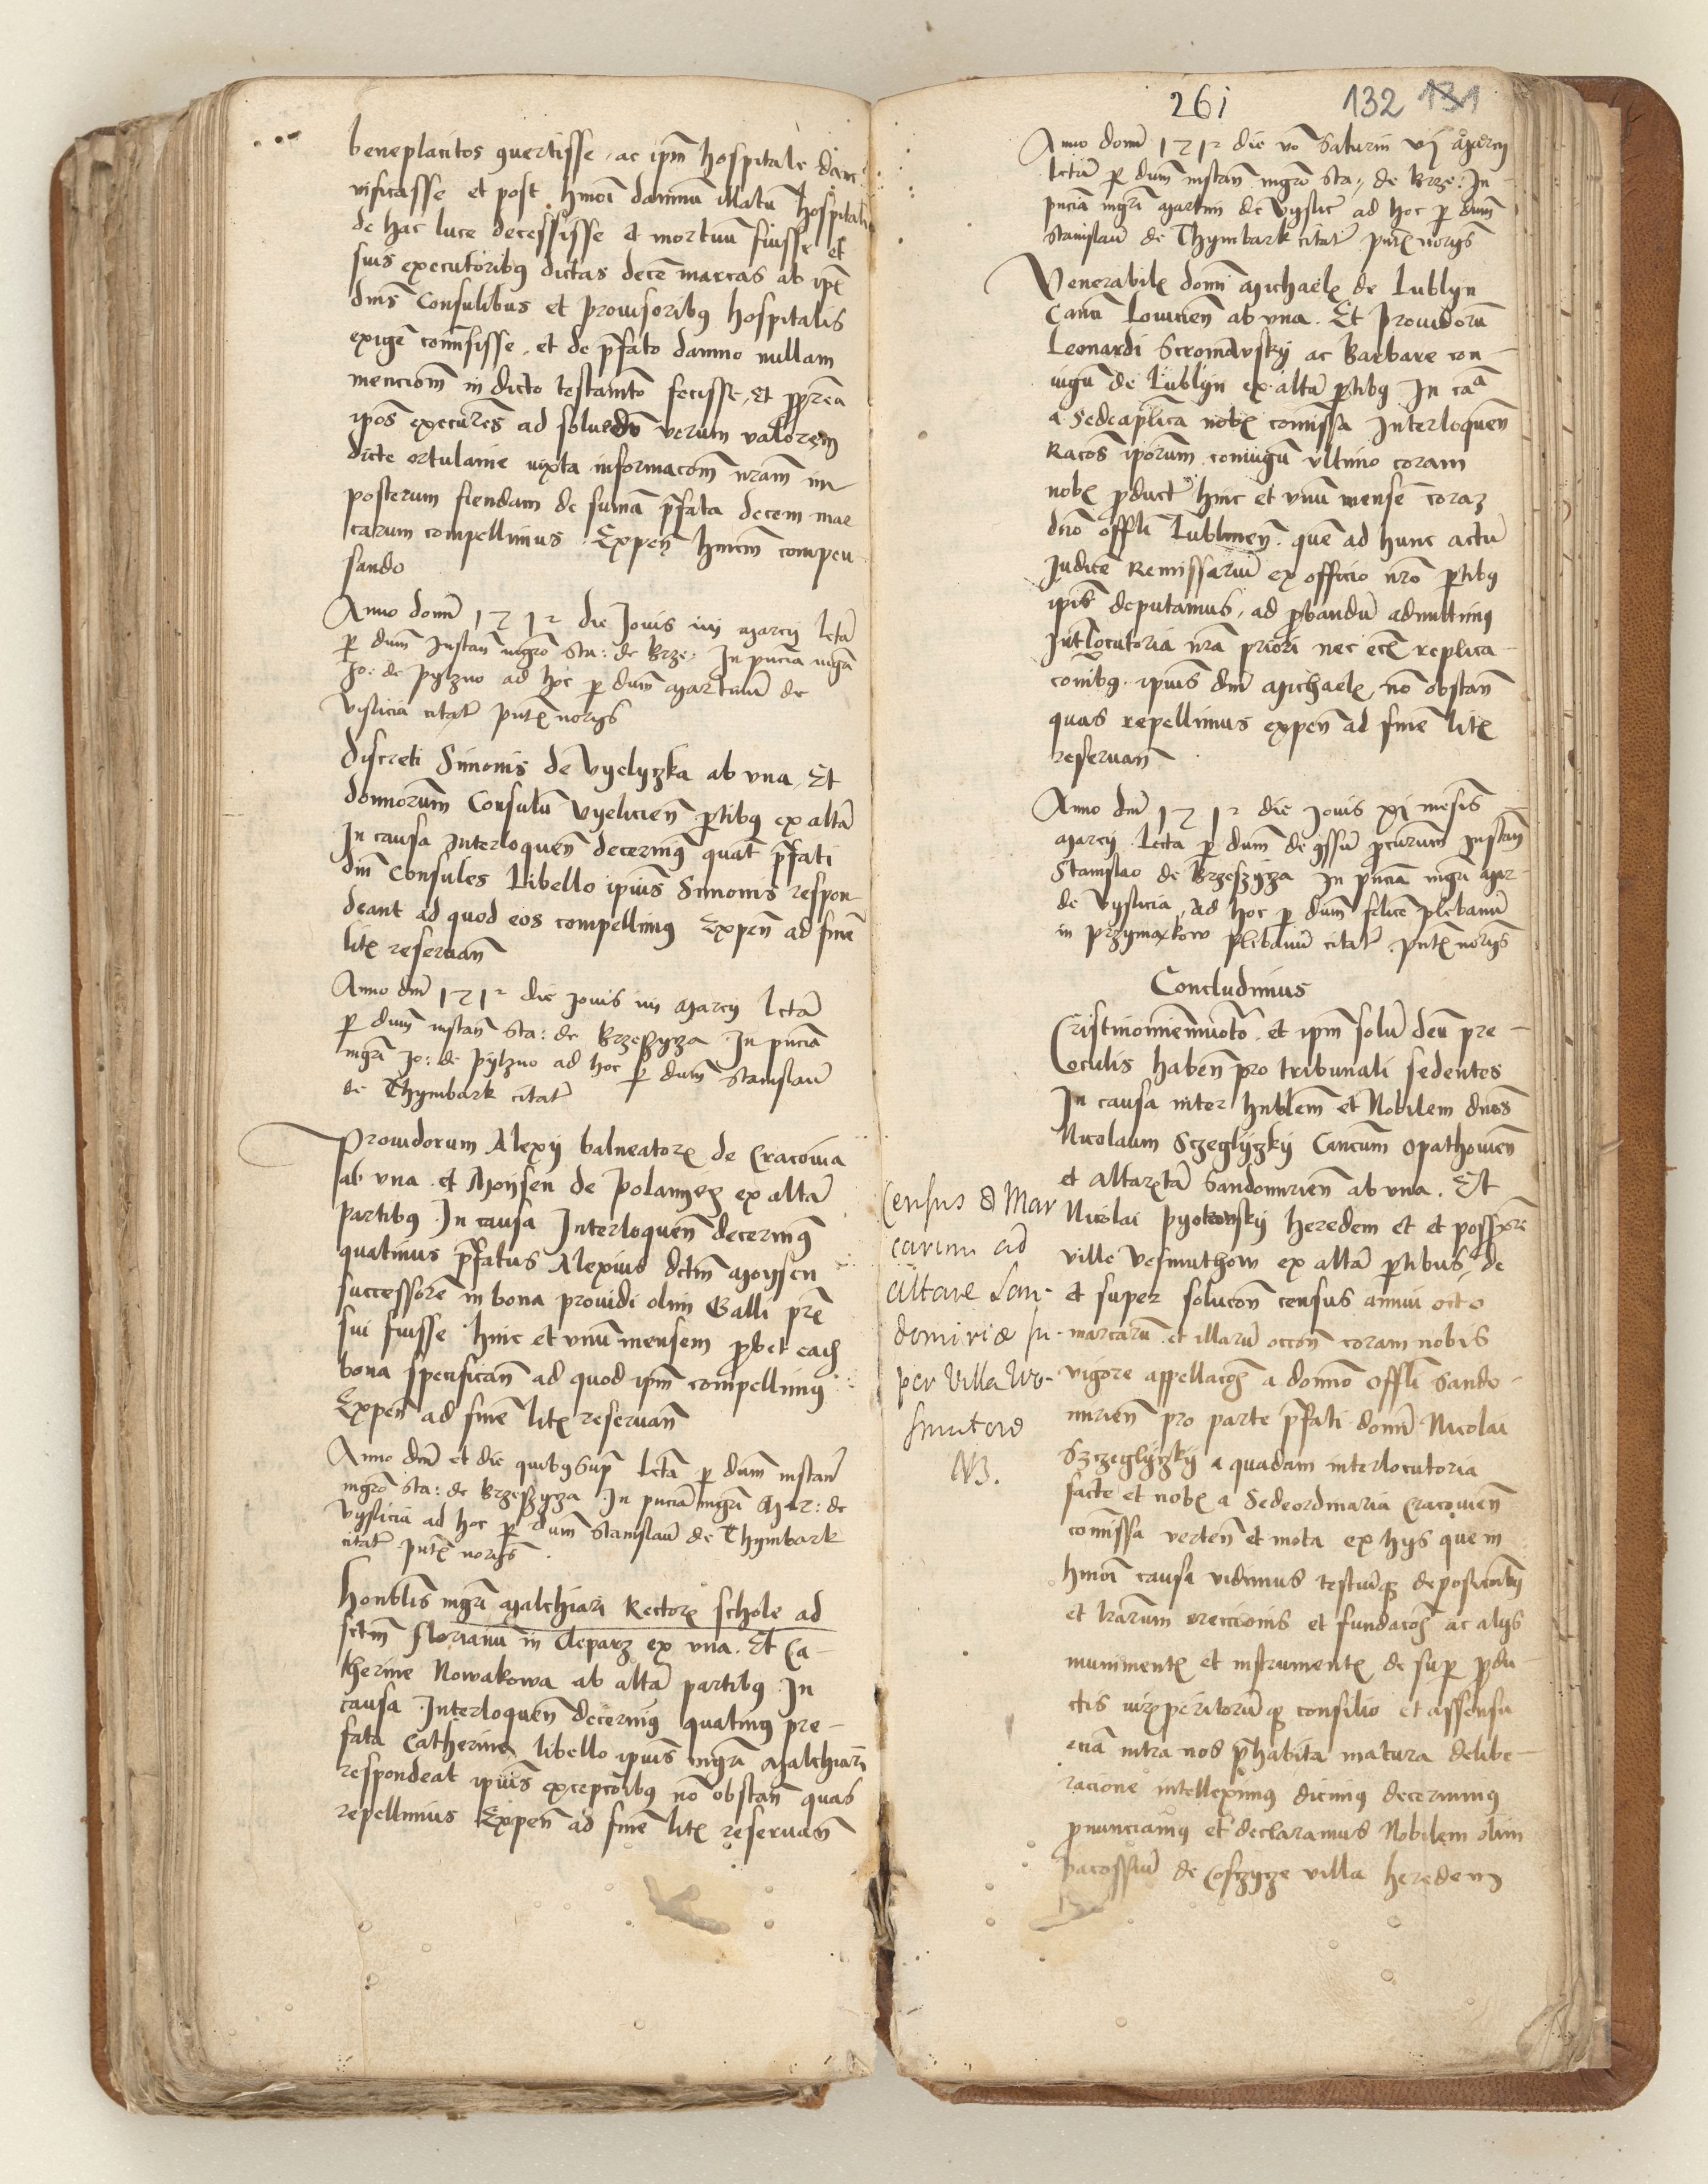 beneplacitos ꝯuertisse, ac ipm̄ hospitale dam-
nificasse et post hmōi damnū illatū hospitali
de hac luce decessisse et mortuū fuisse et
suis executoribꝰ dictas decē marcas ab ip̄ꝭ
dnīs Consulibus et prouisoribꝰ hospitalis
exigē cōmisisse, et de p̄fato damno nullam
mencionē in dicto testamēto fecisse, Et ꝓpterea
ipōs executores ad soluendū verum valorem
dicte ortulanie iuxta informacōm nr̄am im
posterum fiendam de summa p̄fata decem mar
carum compellimus Expen̄ hmōi compen
sando
Anno domī 1512 die Jouis iiij marcij lcta
ꝑ dnm̄ Instan̄ mgrō Sta: de Brze: In pn̄cia mgrī
Jo: de pylzno ad hoc ꝑ dnm̄ martinū de
vislicia citat̄ pn̄tꝭ norijs
Discreti Simonis de Vyelyzka ab vna, Et
domorum Consulū Vyelicien̄ ꝑtibꝰ ex altā
In causa Interloquen̄ decernimꝰ quat̄ p̄fati
dnī Consules Libello ipius Simonis respon
deant ad quod eos compellimꝰ Expen̄ ad finē
litꝭ reseruan̄
Anno dnī 1512 die Jouis iiij marcij lcta
ꝑ dnm̄ instan̄ Sta: de Brzeszyza In pn̄cia
mgrī Jo: de pylzno ad hoc ꝑ dnm̄ Stanislaū
de Thymbark citat̄
Prouidorum Alexij balneatorꝭ de Cracouia
ab vna et Moysen de Polanyez ex altā
partibꝰ In causa Interloquen̄ decernimꝰ
quatinus p̄fatus Alexius dctm̄ Moysen
successorē in bona prouidi olim Galli pr̄is
sui fuisse hinc et vnū mensem ꝓbet eadē
bona specifican̄ ad quod ipm̄ compellimꝰ
Expen̄ ad finē litꝭ reseruan̄
Anno dnī et die quibꝰ supᵃ lcta ꝑ dnm̄ instan̄
mgrō Sta: de Brzeszyza In pn̄cia mgrī Mar: de
Vyslicia ad hoc ꝑ dnm̄ Stanislaū de Thymbark
citat̄ pn̄tꝭ norijs
Honblis mgrī Malchiarī Rectorꝭ schole ad
sctm̄ florianū in Cleparz ex vna. Et Ca-
therine Nowakowa ab altā partibꝰ In
causa Interloquen̄ decernimꝰ quatinꝰ pre-
fata Catherina libello ipius mgrī Malchiarī
respondeat ipius excepcōibꝰ nō obstan̄ quas
repellimus Expen̄ ad finē litꝭ reseruan̄
261 132 131
Anno domī 1512 die vo Saturni vj Marcij
lcta ꝑ dnm̄ instan̄ mgrō Sta: de Brze: In
pn̄cia mgrī Martini de Vyslic̄ ad hoc ꝑ dnm̄
Stanislaū de Thymbark citat̄ pn̄tꝭ norijs
Venerabilꝭ domī Michaelꝭ de Lublyn
Canō Louicien̄ ab vna. Et Prouidorū
Leonardi Scromawsky ac Barbare con-
iugū de Lublyn ex altā ꝑtibꝰ In cāᵃ
a Sede aplica nobꝭ comissa Interloquen̄
Racōs ipōrum coniugū vltimo coram
nobꝭ ꝓduct̄ hinc et vnū mensē coraz
dnō offlī Lublinen̄. quē ad hunc actū
Judicē Remissariū ex officio nrō ꝑtibꝰ
ipis deputamus, ad ꝓbandū admittimꝰ
Int̄locutoria nr̄a priori nec ecꝭ replica-
cōnibꝰ ipius dnī Michaelꝭ nō obstan̄
quas repellimus expen̄ ad finē litꝭ
reseruan̄
Anno dnī 1512 die Jouis xj mēsis
Marcij Lecta ꝑ dnm̄ de ꝯssū ꝓcurūm Instan̄
Stanislao de Brzeszyza In pn̄cia mgrī Mar-
de Vyslicia, Ad hoc ꝑ dnm̄ felicē plebanū
in przymaxkow plebanū citat̄ pn̄tꝭ norijs
Concludimus
Cristi nomine inuocato. et ipm̄ solū deū pre-
Oculis haben̄ pro tribunali sedentes
In causa inter hnblem et Nobilem dnos
Nicolaum Sczeglyzky Cancūm Opathouien̄
et Altarꝭtā Sandomirien̄ ab vna. Et
Nicolai pyotrowsky heredem et et possessorē
ville Vesmuthow ex altā ꝑtibus, de
et super solucōn̄ census annui octo
marcarū et illarū occōn̄ coram nobis
vigore appellacōs a domō offlī Sando-
mirien̄ pro parte p̄fati domī Nicolai
Szczeglyzky a quadam interlocutoria
facte et nobꝭ a Sede ordinaria Cracouien̄
comissa verten̄ et mota ex hijs que in
hmōi causa vidimus testiūqꝫ deposicōibꝰ
et lrarum ereccionis et fundacōs ac alijs
munimentꝭ et instrumentꝭ de suꝑ ꝓdu-
ctis iurꝭperitorūqꝫ consilio et assensu
eciā intra nos p̄habita matura delibe-
racione intellexímꝰ dicimꝰ decernimꝰ
ꝓnunciamꝰ et declaramus Nobilem olim
pacossium de Coszyze villa heredem
Census 8 Mar
carum ad
altare San-
domiriæ su-
per Villa Wo-
smutow
NB.